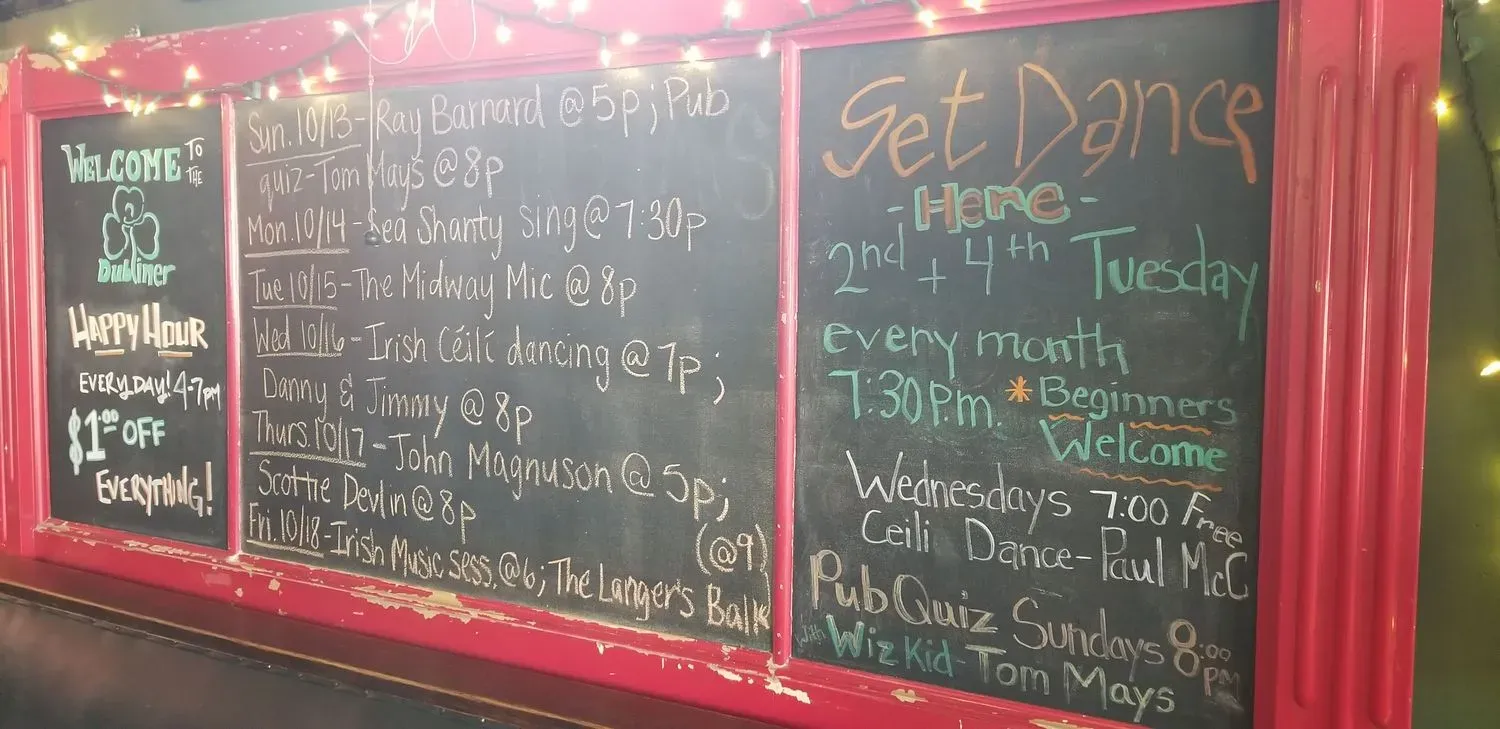 WELCOME TO THE
Dubliner
HAPPY HOUR
EVERYDAY! 4-7PM
$1.00 OFF
EVERYTHING!
Sun. 10/13 - Ray Barnard @ 5p; Pub
quiz - Tom Mays @ 8p
Mon. 10/14 - Sea Shanty sing @ 7:30p
Tue 10/15 - The Midway Mic @ 8p
Wed 10/16 - Irish Céilí dancing @ 7p;
Danny & Jimmy @ 8p
Thurs. 10/17 - John Magnuson @ 5p;
Scottie Devlin @ 8p
(@9)
Fri. 10/18 - Irish Music sess. @6; The Langer's Balk
Set Dance
- Here -
2nd + 4th Tuesday
every month
7:30 P.m. * Beginners
Welcome
Wednesdays 7:00 Free
Ceili Dance - Paul McC
Pub Quiz Sundays 8:00 pm
with Wiz Kid - Tom Mays